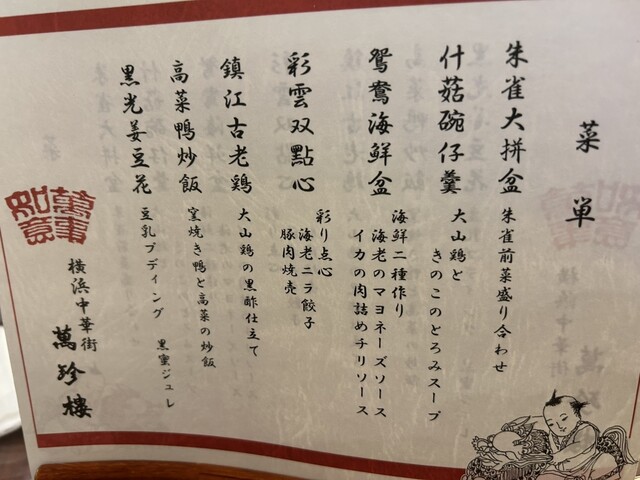 菜単
朱雀大拼盆
朱雀前菜盛り合わせ
什菇碗仔羹
大山鶏と
きのこのとろみスープ
鴛鴦海鮮盆
海鮮二種作り
海老のマヨネーズソース
イカの肉詰めチリソース
彩雲双點心
彩り点心
海老ニラ餃子
豚肉焼売
鎮江古老鶏
大山鶏の黒酢仕立て
高菜鴨炒飯
窯焼き鴨と高菜の炒飯
黒光姜豆花
豆乳プディング 黒蜜ジュレ
萬事
如意
横浜中華街
萬珍樓